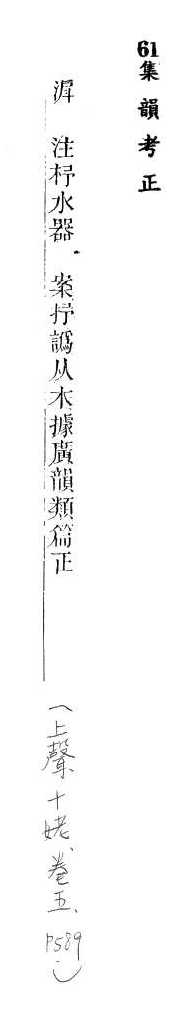 61集韻考正
注杼水器．案抒譌从木據廣韻類篇正
（上聲十姥、卷五、P589）